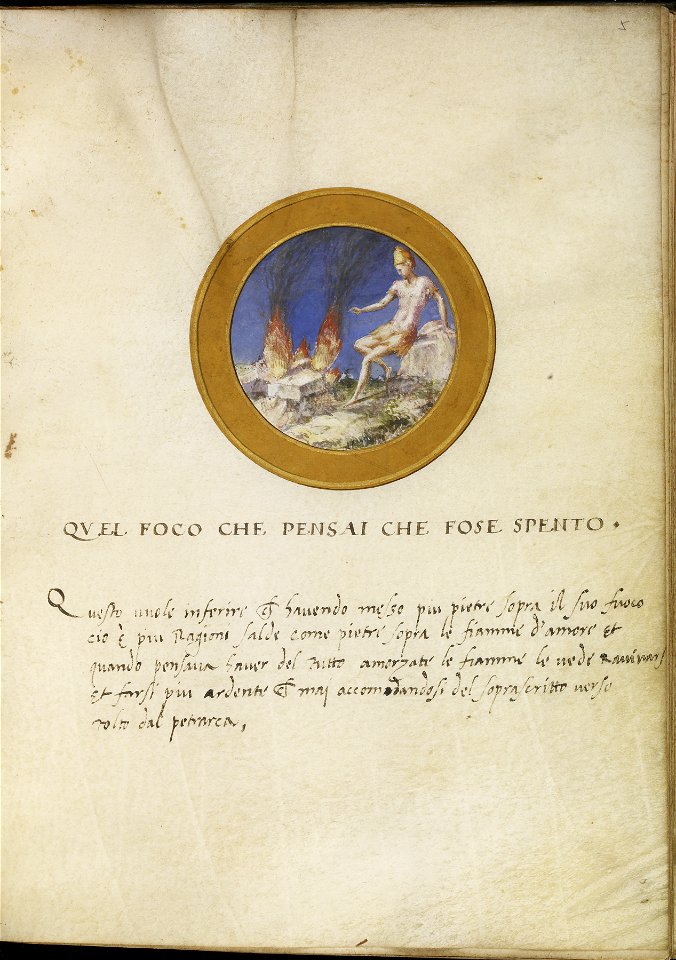 5
QVEL FOCO CHE PENSAI CHE FOSE SPENTO.
Questo vuole inferire ch havendo messo piu pietre sopra il suo fuoco
cio è piu Ragioni salde come pietre sopra le fiamme d'amore et
quando pensava haver del tutto amorzate le fiamme le vede Ravivarsi
et farsi piu ardente ch mai accomodandosi del soprascritto verso
tolto dal petrarca,